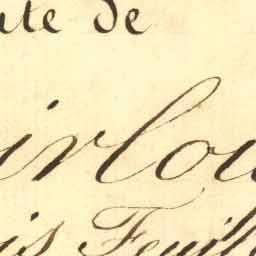 nte de
irlou
is Feuill